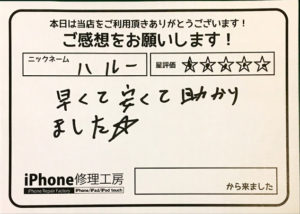 本日は当店をご利用頂きありがとうございます！
ご感想をお願いします！
ニックネーム ハルー 星評価 ★★★★★
早くて安くて助かり
ました☆
iPhone修理工房
iPhone Repair Factory iPhone/iPad/iPod touch
から来ました